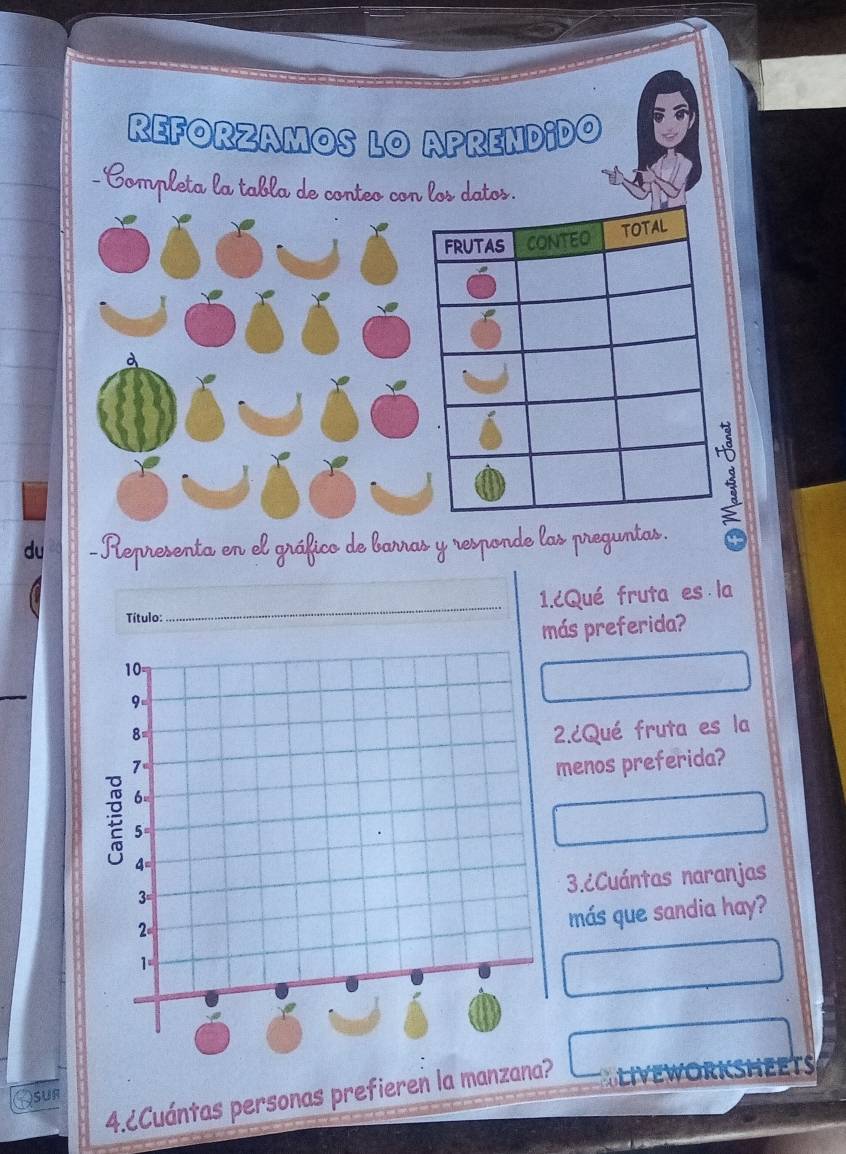 REFORZAMOS LO APRENDIDO
-Completa la tabla de conteo con los datos.
FRUTAS CONTEO TOTAL
Maestra Janet
du
-Representa en el gráfico de barras y responde las preguntas.
Título:
Cantidad
10
9
8
7
6
5
4
3
2
1
1.¿Qué fruta es la
más preferida?
2.¿Qué fruta es la
menos preferida?
3.¿Cuántas naranjas
más que sandia hay?
4.¿Cuántas personas prefieren la manzana?
LIVEWORKSHEETS
SUR